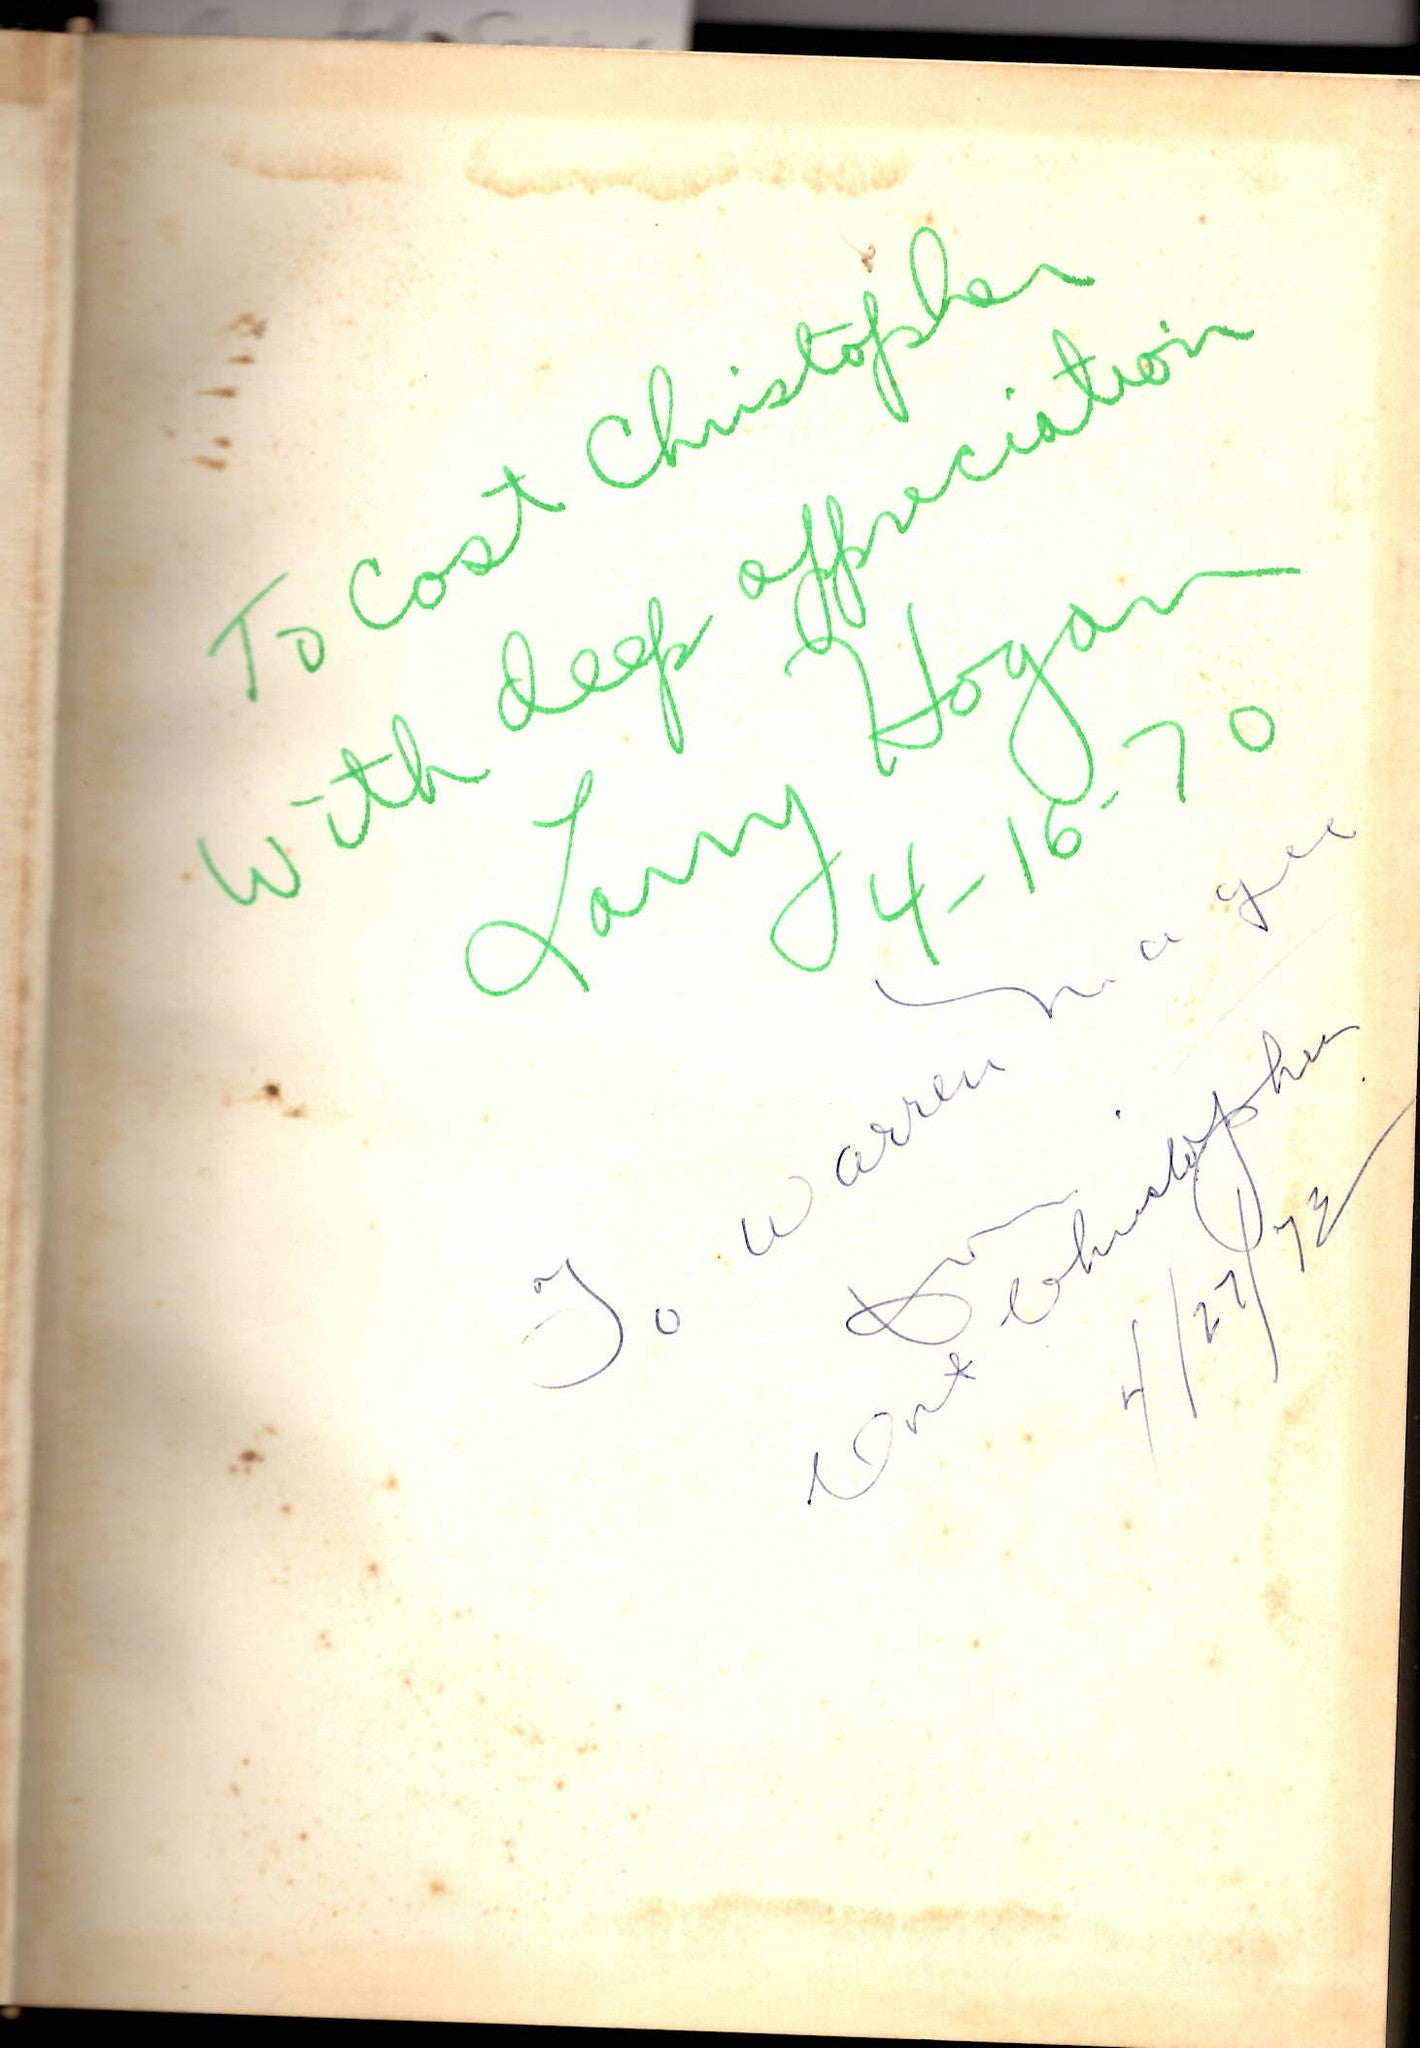 To Cost Christopher
With deep appreciation
Larry Hogan
4-16-70
To Warren Magee
From
Christopher
4/27/73